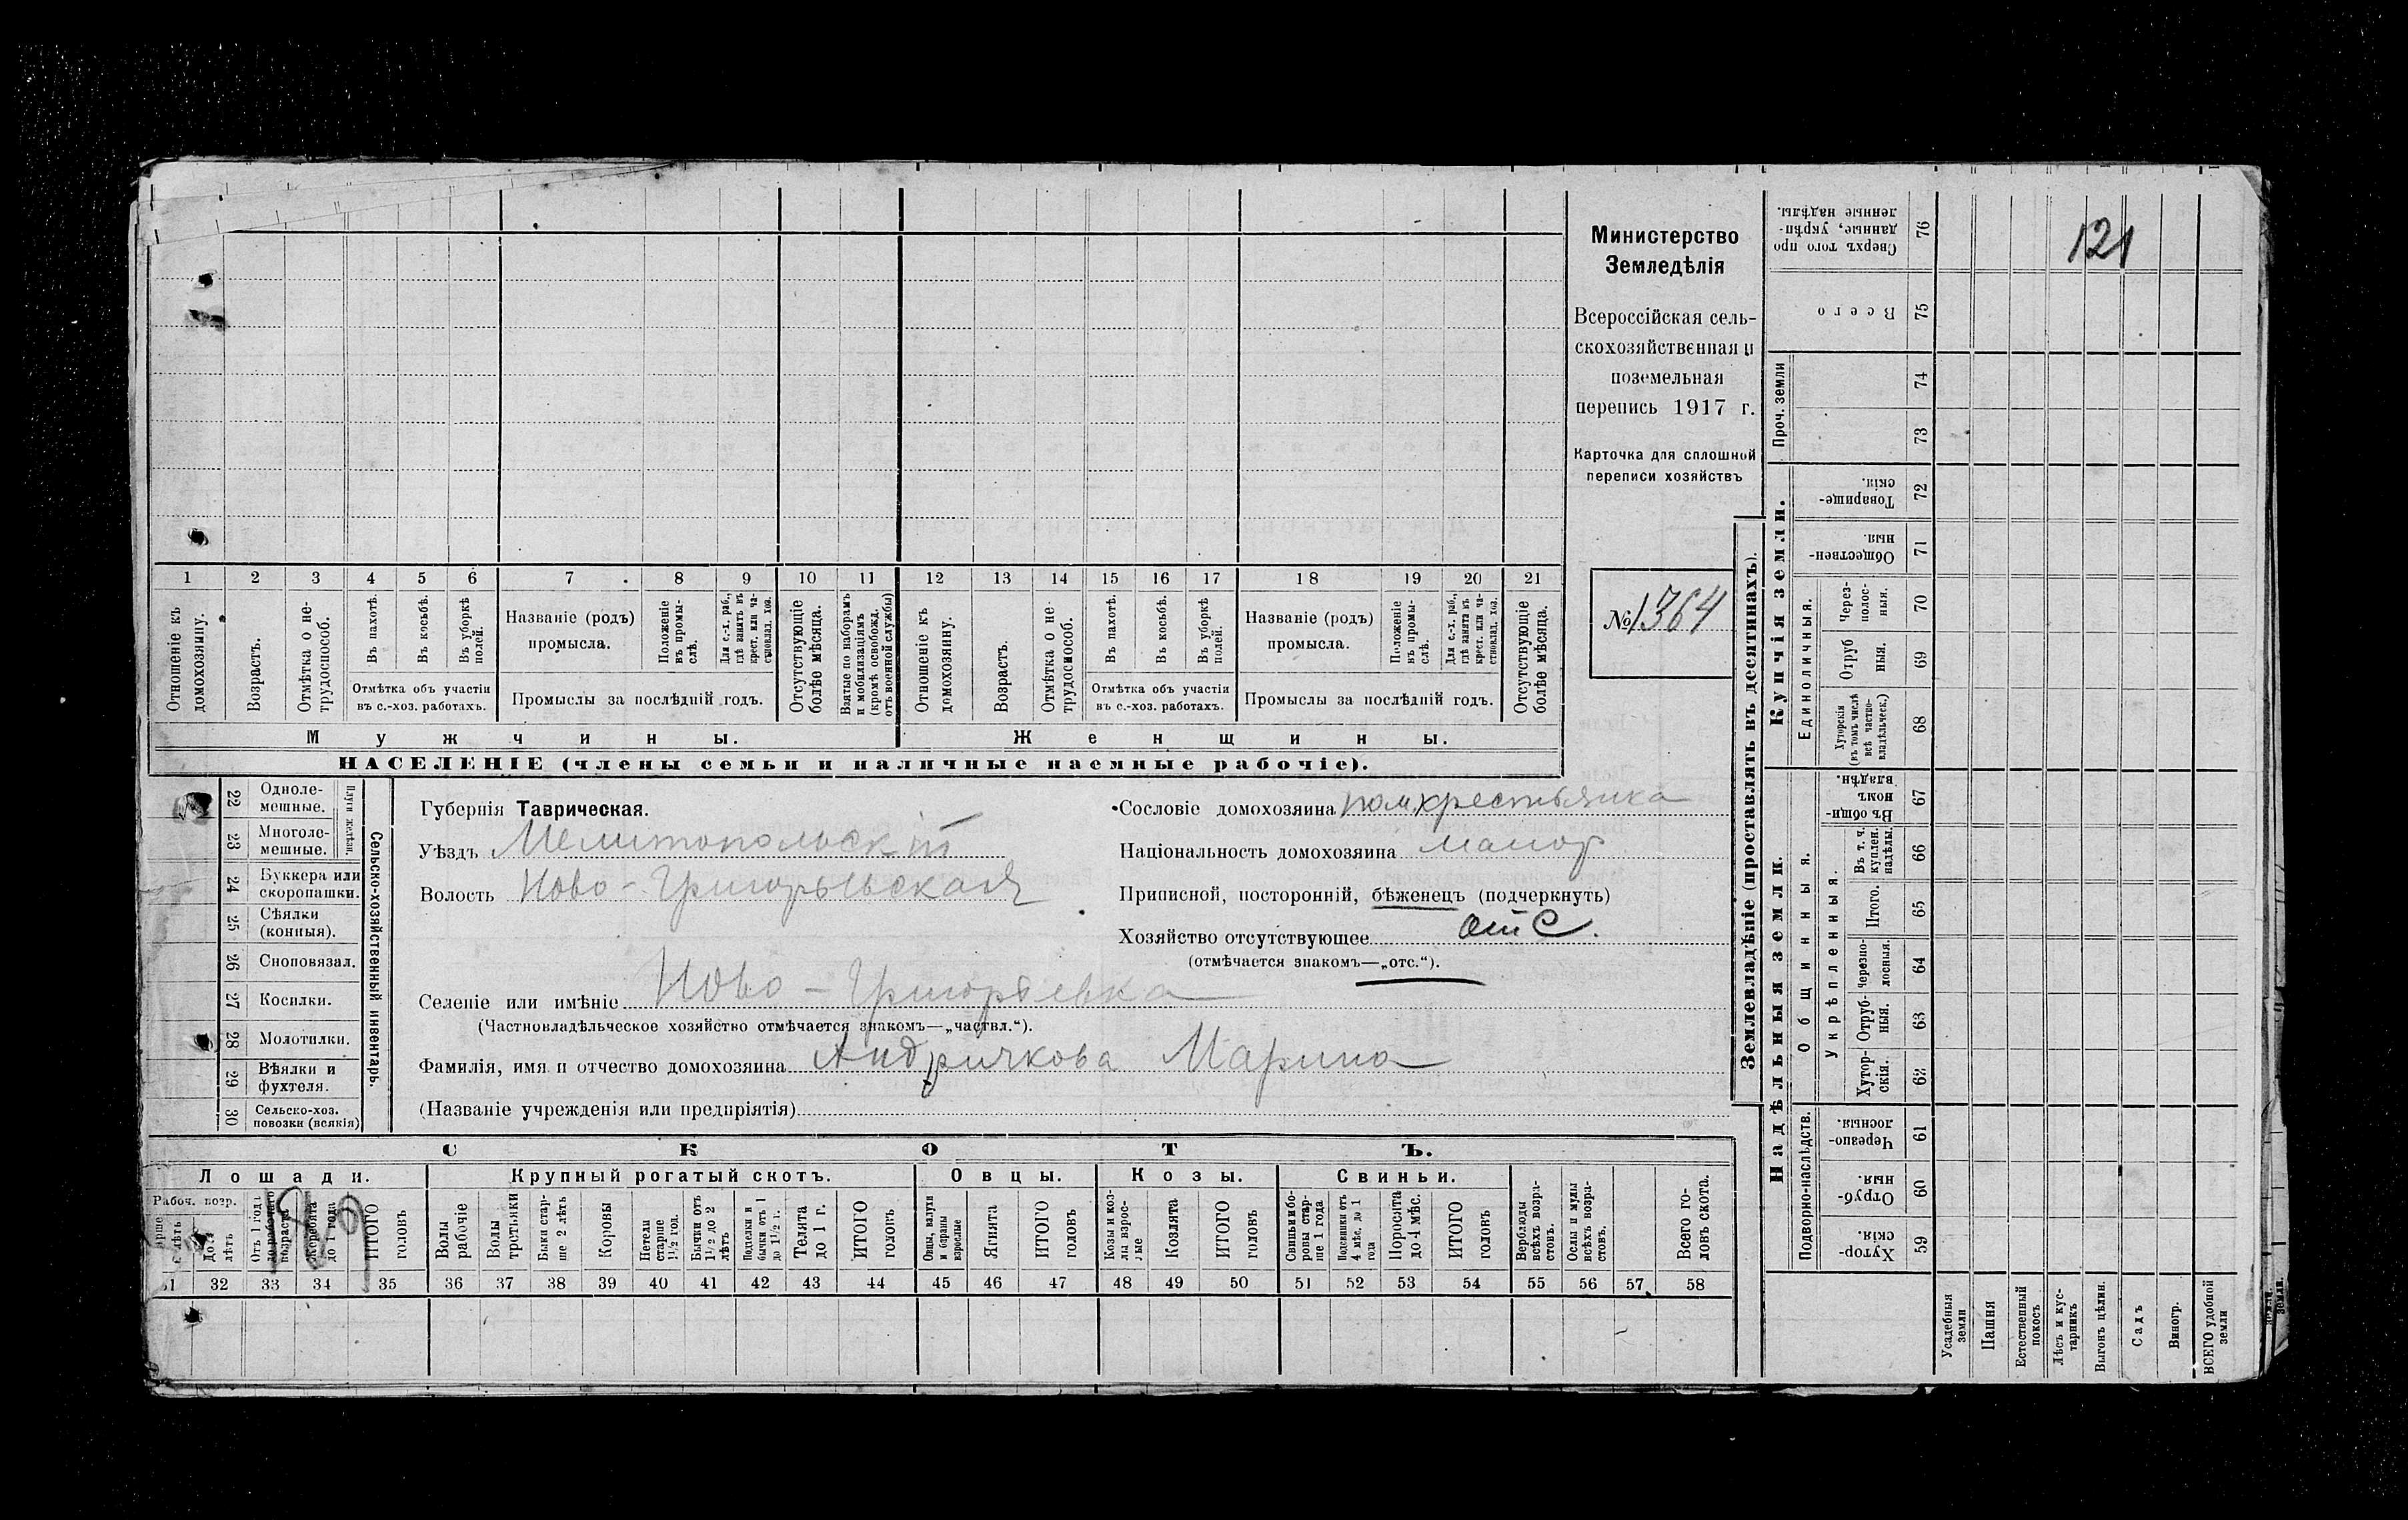 Министерство
Земледѣлія
Всероссійская сель-
скохозяйственная и
поземельная
перепись 1917 г.
Карточка для сплошной
переписи хозяйствъ
№ 1364
121
1 2 3 4 5 6 7 8 9 10 11 12 13 14 15 16 17 18 19 20 21
Отношеніе къ домохозяину.
Возрастъ.
Отмѣтка о не-трудоспособ.
Въ пахотѣ.
Въ косьбѣ.
Въ уборкѣ полей.
Отмѣтка объ участіи
въ с.-хоз. работахъ.
Названіе (родъ)
промысла.
Положеніе въ промы-слѣ.
Для с.-х. раб., гдѣ занятъ въ крест. или ча-стновлад. хоз.
Промыслы за послѣдній годъ.
Отсутствующіе болѣе мѣсяца.
Взятые по наборамъ и мобилизаціямъ (кромѣ освобожд. отъ военной службы)
Отношеніе къ домохозяину.
Возрастъ.
Отмѣтка о не-трудоспособ.
Въ пахотѣ.
Въ косьбѣ.
Въ уборкѣ полей.
Отмѣтка объ участіи
въ с.-хоз. работахъ.
Названіе (родъ)
промысла.
Положеніе въ промы-слѣ.
Для с.-х. раб., гдѣ занята въ крест. или ча-стновлад. хоз.
Промыслы за послѣдній годъ.
Отсутствующіе болѣе мѣсяца.
Мужчины.
Женщины.
НАСЕЛЕНІЕ (члены семьи и наличные наемные рабочіе).
22 Одноле-мешные.
23 Многоле-мешные.
Плуги желѣзн.
24 Буккера или скоропашки.
25 Сѣялки (конныя).
26 Сноповязал.
27 Косилки.
28 Молотилки.
29 Вѣялки и фухтеля.
30 Сельско-хоз. повозки (всякія)
Сельско-хозяйственный инвентарь.
Губернія Таврическая.
Уѣздъ Мелитопольскій
Волость Ново-Григорьевская
Селеніе или имѣніе Ново-Григорьевка
(Частновладѣльческое хозяйство отмѣчается знакомъ—„частвл.“).
Фамилія, имя и отчество домохозяина Андричкова Марина
(Названіе учрежденія или предпріятія)
Сословіе домохозяина крестьянка
Національность домохозяина малор
Приписной, посторонній, бѣженецъ (подчеркнуть)
Хозяйство отсутствующее отс.
(отмѣчается знакомъ—„отс.“).
СКОТЪ.
Лошади.
Крупный рогатый скотъ.
Овцы.
Козы.
Свиньи.
Рабоч. возр.
Отъ 1 года до рабочаго возраста
Жеребята до 1 года
ИТОГО головъ
Волы рабочіе
Волы третьяки
Быки стар-ше 2 лѣтъ
Коровы
Нетели старше 1½ год.
Бычки отъ 1½ до 2 лѣтъ
Подтелки и бычки отъ 1 до 1½ г.
Телята до 1 г.
ИТОГО головъ
Овцы, валухи и бараны взрослые
Ягнята
ИТОГО головъ
Козы и коз-лы взрос-лые
Козлята
ИТОГО головъ
Свиньи и бо-ровы стар-ше 1 года
Подсвинки отъ 4 мѣс. до 1 года
Поросята до 4 мѣс.
ИТОГО головъ
Верблюды всѣхъ возра-стовъ.
Ослы и мулы всѣхъ возра-стовъ.
Всего го-ловъ скота.
32 33 34 35 36 37 38 39 40 41 42 43 44 45 46 47 48 49 50 51 52 53 54 55 56 57 58
Землевладѣніе (проставлять въ десятинахъ).
Купчія земли.
Надѣльныя земли.
Сверхъ того про данные, укрѣп-ленные надѣлы. 76
Всего 75
Проч. земли 74
73
Товарище-скія. 72
Обществен-ныя. 71
Единоличныя.
Через-полос-ныя. 70
Отруб ныя. 69
Хуторскія (въ томъ числѣ всѣ частно-владѣльческ.) 68
Общинныя.
Въ общи-номъ владѣн. 67
Укрѣпленныя.
Въ т. ч. куплен. надѣлы. 66
Итого. 65
Черезпо-лосныя. 64
Отруб-ныя. 63
Хутор-скія. 62
Подворно-наслѣдств.
Черезпо-лосныя. 61
Отруб-ныя. 60
Хутор-скія. 59
Усадебныя земли
Пашня
Естественный покосъ
Лѣсъ и кус-тарникъ
Выгонъ цѣлин.
Садъ
Виногр.
ВСЕГО удобной земли